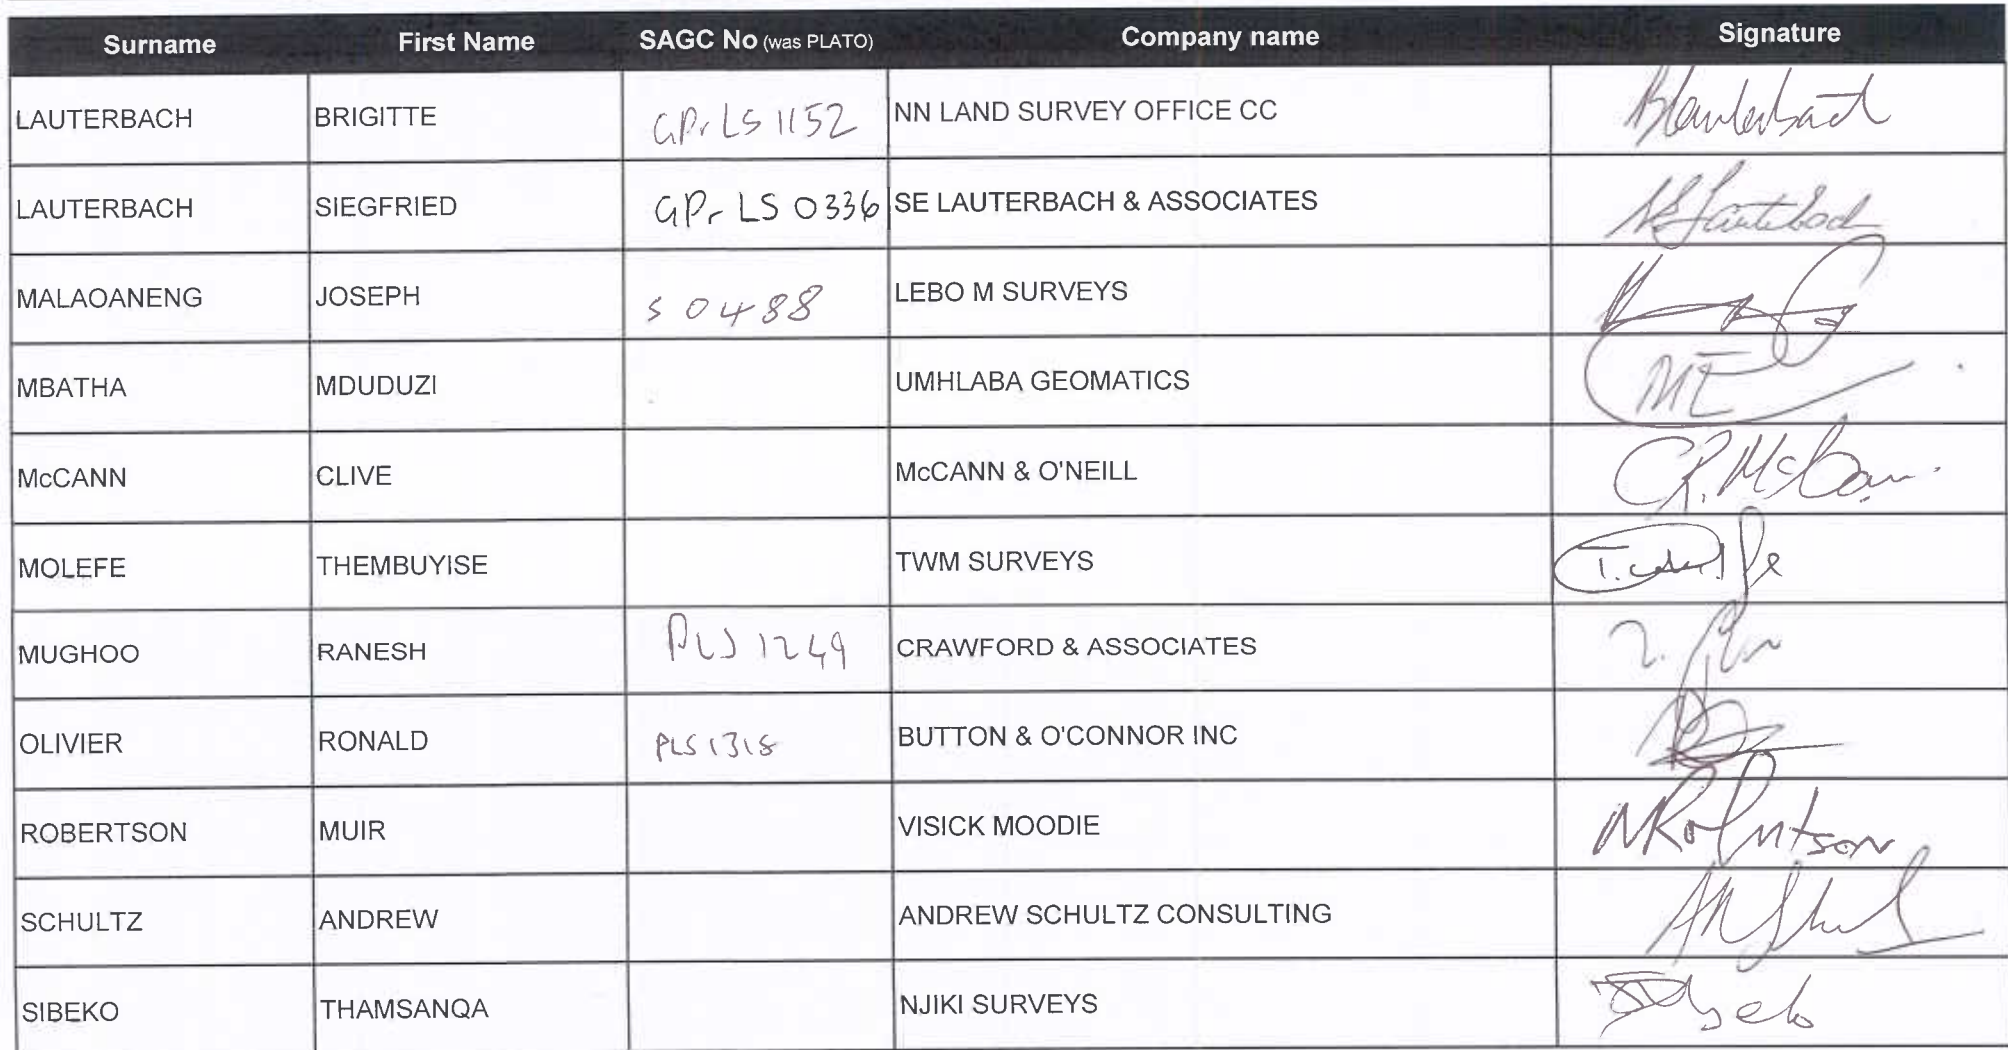 Surname First Name SAGC No (was PLATO) Company name Signature
LAUTERBACH BRIGITTE GPrLS 1152 NN LAND SURVEY OFFICE CC Blauterbach
LAUTERBACH SIEGFRIED GPr LS 0336 SE LAUTERBACH & ASSOCIATES
MALAOANENG JOSEPH S 0488 LEBO M SURVEYS
MBATHA MDUDUZI UMHLABA GEOMATICS ME
McCANN CLIVE McCANN & O'NEILL
MOLEFE THEMBUYISE TWM SURVEYS
MUGHOO RANESH PLS 1249 CRAWFORD & ASSOCIATES
OLIVIER RONALD PLS 1318 BUTTON & O'CONNOR INC
ROBERTSON MUIR VISICK MOODIE MRobertson
SCHULTZ ANDREW ANDREW SCHULTZ CONSULTING
SIBEKO THAMSANQA NJIKI SURVEYS